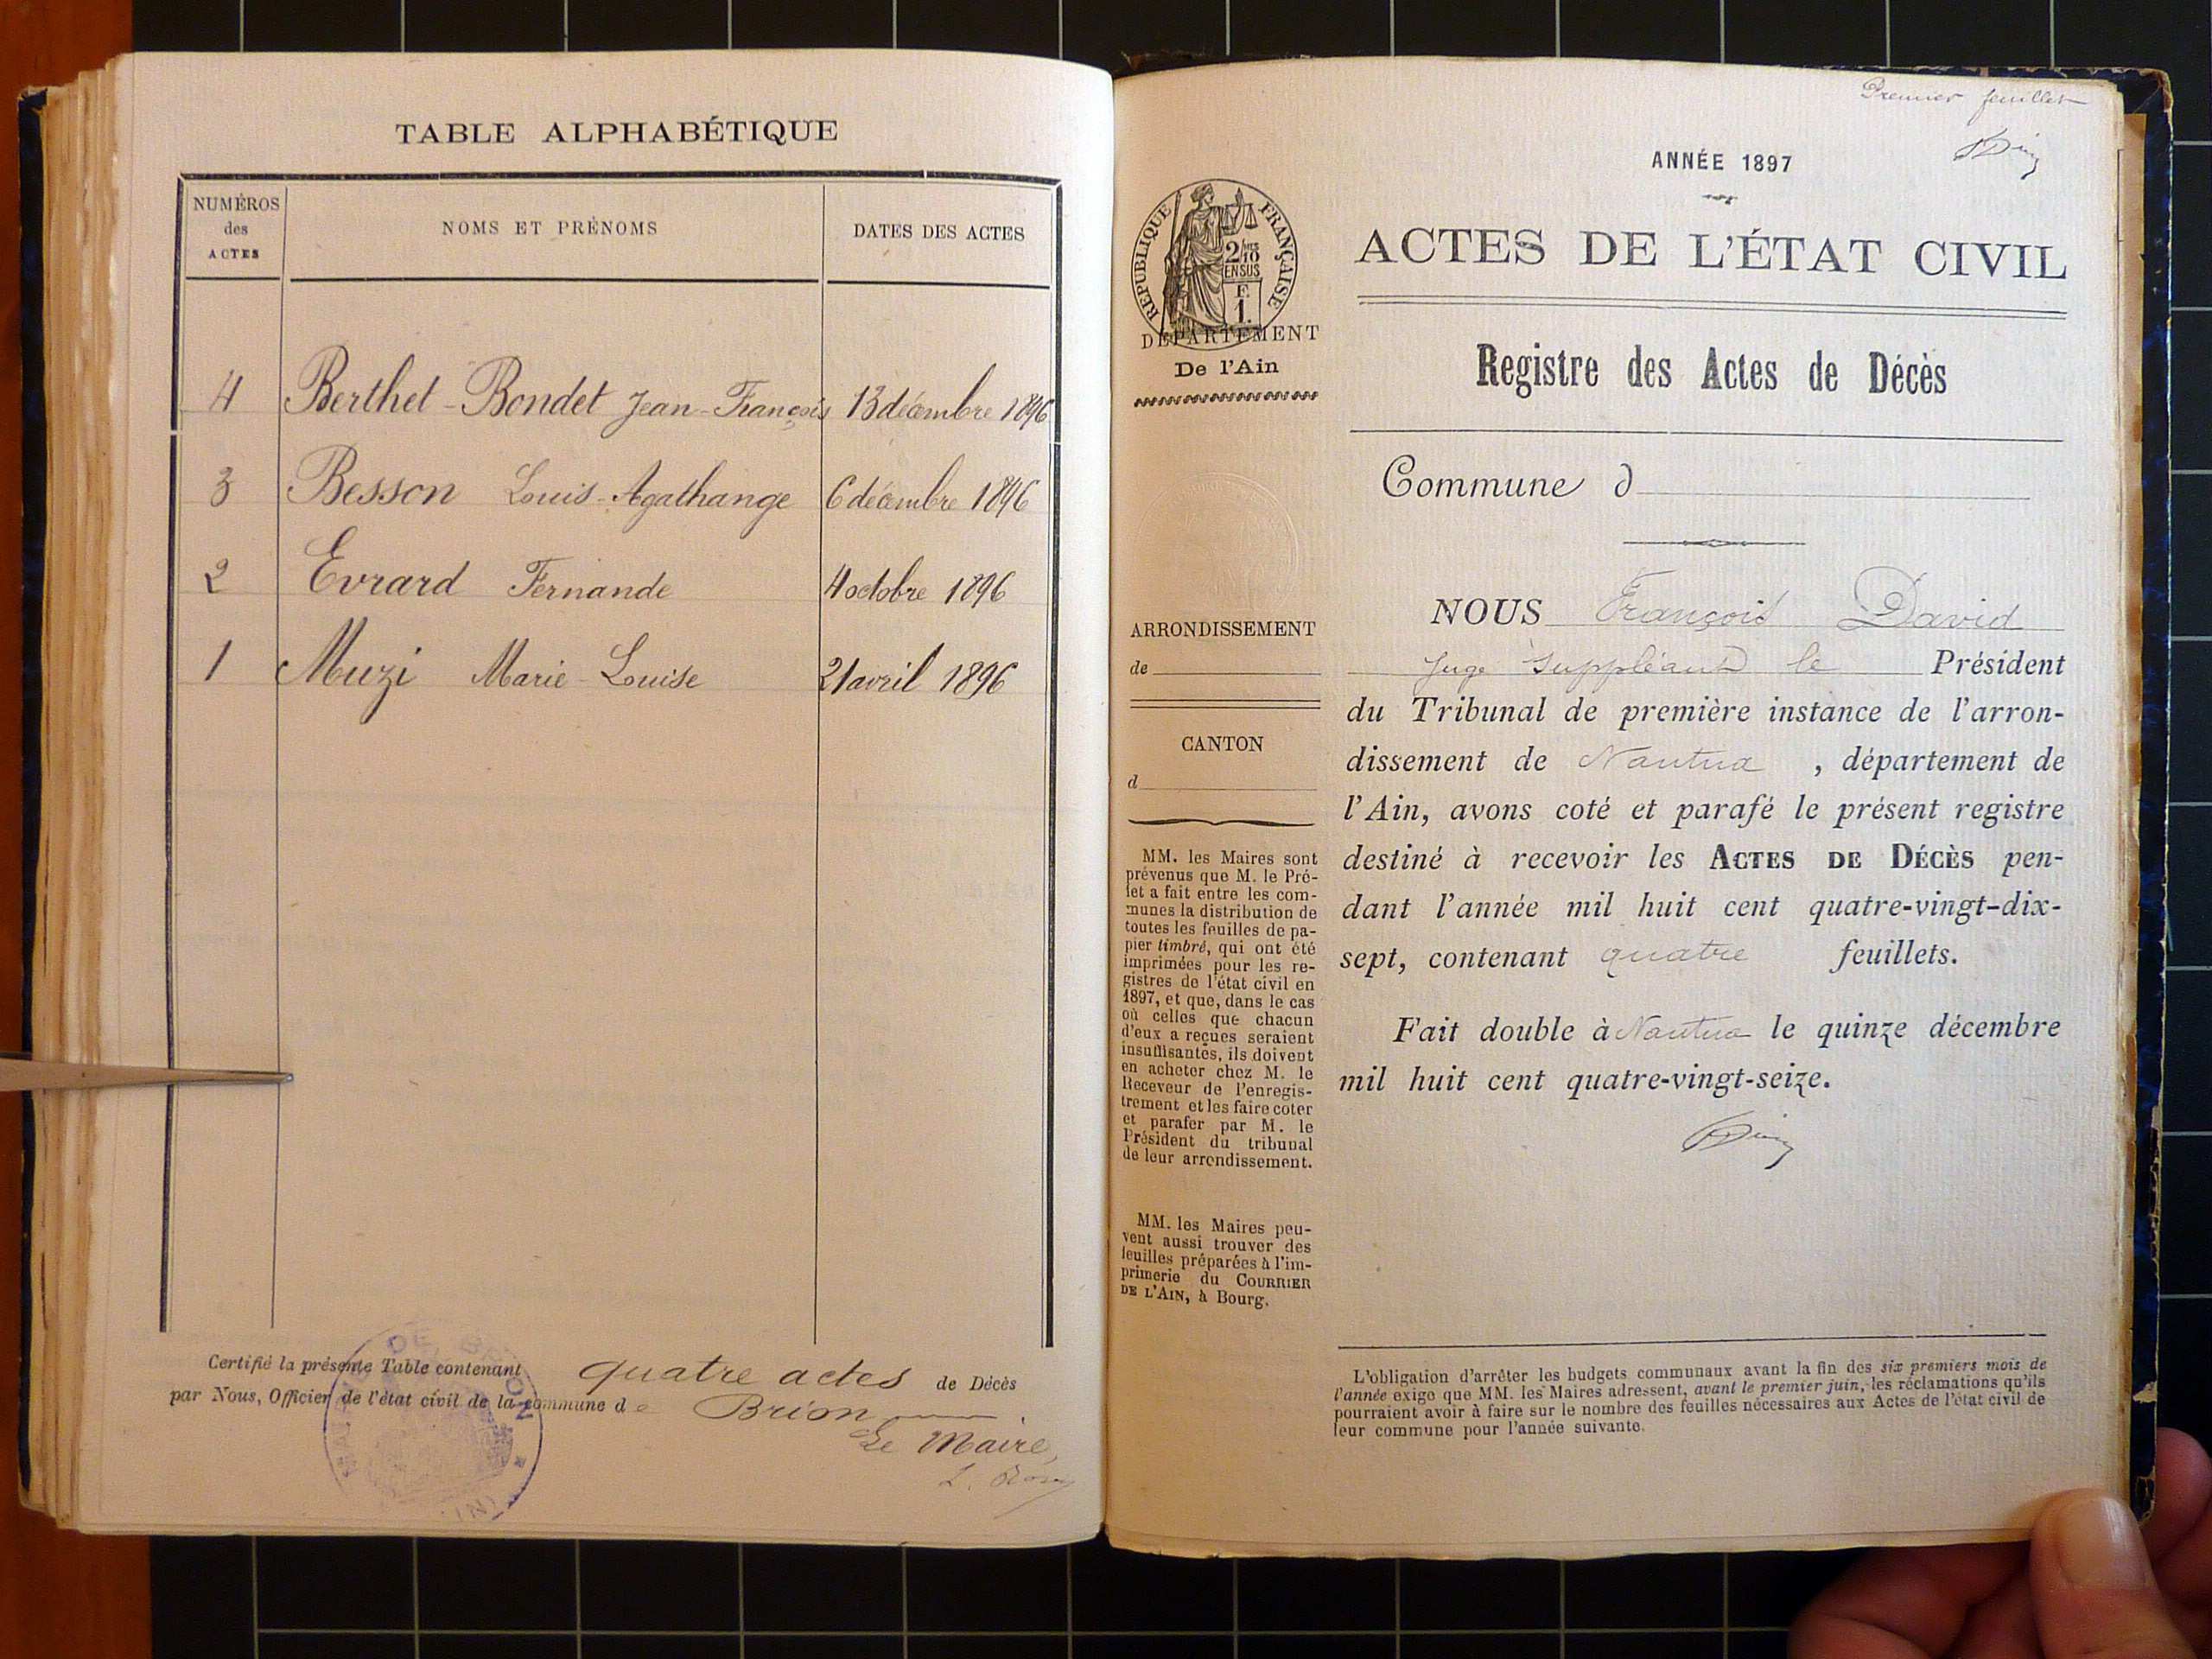 TABLE ALPHABÉTIQUE
NUMÉROS
des
ACTES
NOMS ET PRÉNOMS
DATES DES ACTES
4 Berthet-Bondet Jean-François 13 décembre 1896
3 Besson Louis-Agathange 6 décembre 1896
2 Evrard Fernande 4 octobre 1896
1 Muzi Marie-Louise 21 avril 1896
Certifié la présente Table contenant quatre actes de Décès
par Nous, Officier de l'état civil de la commune de Brion
Le Maire,
Premier feuillet
ANNÉE 1897
ACTES DE L'ÉTAT CIVIL
Registre des Actes de Décès
Commune d
NOUS François David
Juge Suppléant le Président
du Tribunal de première instance de l'arron-
dissement de Nantua , département de
l'Ain, avons coté et parafé le présent registre
destiné à recevoir les ACTES DE DÉCÈS pen-
dant l'année mil huit cent quatre-vingt-dix-
sept, contenant quatre feuillets.
Fait double à Nantua le quinze décembre
mil huit cent quatre-vingt-seize.
L'obligation d'arrêter les budgets communaux avant la fin des six premiers mois de
l'année exige que MM. les Maires adressent, avant le premier juin, les réclamations qu'ils
pourraient avoir à faire sur le nombre des feuilles nécessaires aux Actes de l'état civil de
leur commune pour l'année suivante.
RÉPUBLIQUE FRANÇAISE
2/10
EN SUS
F.
1.
DÉPARTEMENT
De l'Ain
ARRONDISSEMENT
de
CANTON
d
MM. les Maires sont
prévenus que M. le Pré-
fet a fait entre les com-
munes la distribution de
toutes les feuilles de pa-
pier timbré, qui ont été
imprimées pour les re-
gistres de l'état civil en
1897, et que, dans le cas
où celles que chacun
d'eux a reçues seraient
insuffisantes, ils doivent
en acheter chez M. le
Receveur de l'enregis-
trement et les faire coter
et parafer par M. le
Président du tribunal
de leur arrondissement.
MM. les Maires peu-
vent aussi trouver des
feuilles préparées à l'im-
primerie du COURRIER
DE L'AIN, à Bourg.